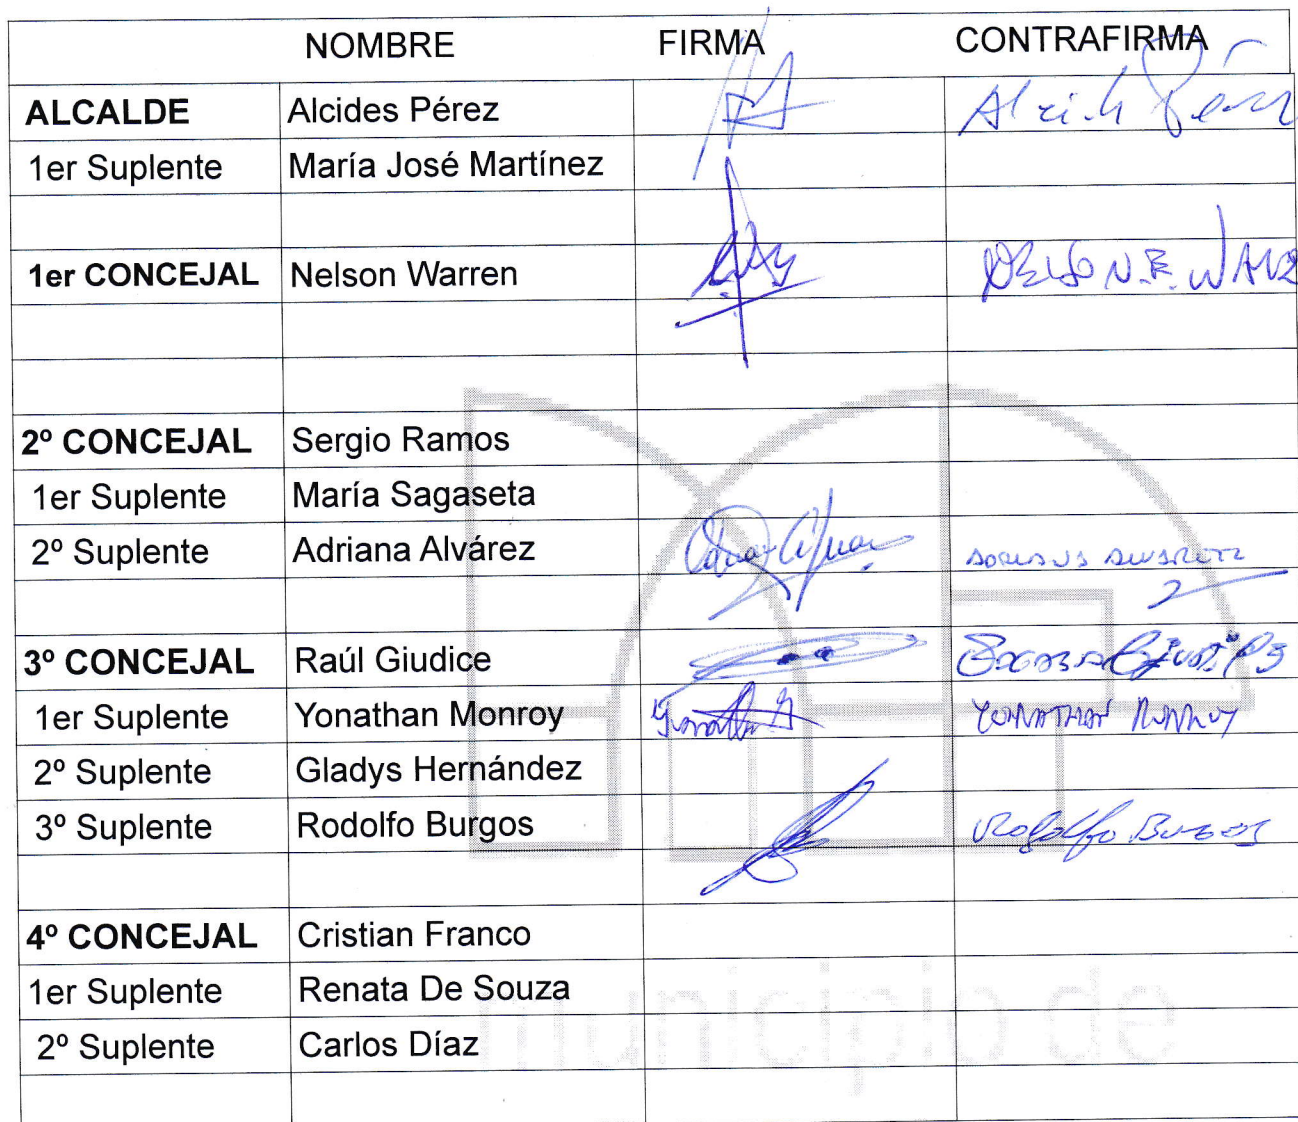 NOMBRE FIRMA CONTRAFIRMA
ALCALDE Alcides Pérez Alcides Pérez
1er Suplente María José Martínez
1er CONCEJAL Nelson Warren NELSON.E.
2º CONCEJAL Sergio Ramos
1er Suplente María Sagaseta
2º Suplente Adriana Alvárez ADRIANA ALVAREZ
3º CONCEJAL Raúl Giudice
1er Suplente Yonathan Monroy YONATHAN MONROY
2º Suplente Gladys Hernández
3º Suplente Rodolfo Burgos Rodolfo Burgos
4º CONCEJAL Cristian Franco
1er Suplente Renata De Souza
municipio de
2º Suplente Carlos Díaz